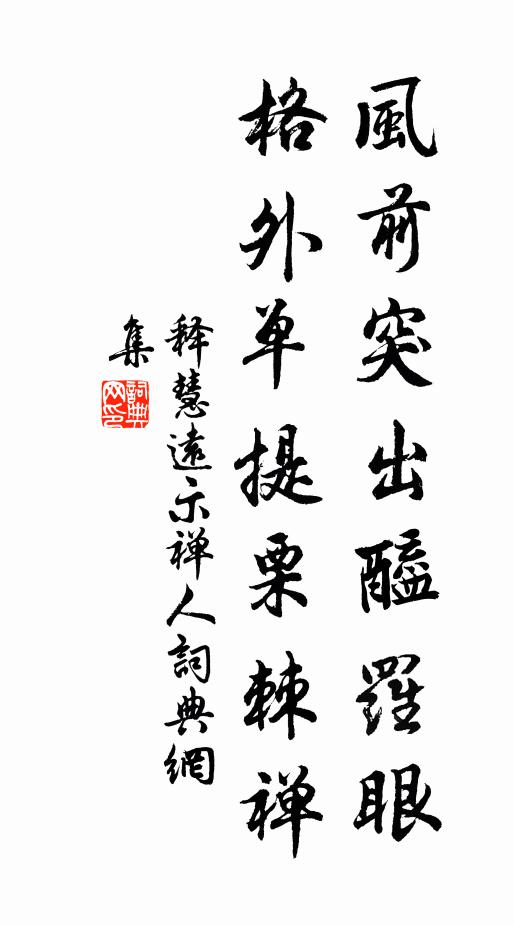 風前突出醯羅眼
格外单提栗棘禅
释慧遠示禅人詞典網
集
詞典网印